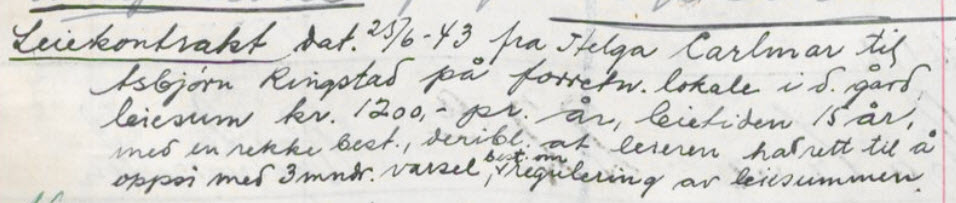 Leiekontrakt dat. 25/6-43 fra Helga Carlmar til
Asbjørn Ringstad på forretn. lokale i d. gård,
leiesum kr. 1200,- pr. år, leietiden 15 år,
med en rekke best., deribl. at leieren had rett til å
oppsi med 3 mndr. varsel, best. om regulering av leiesummen.